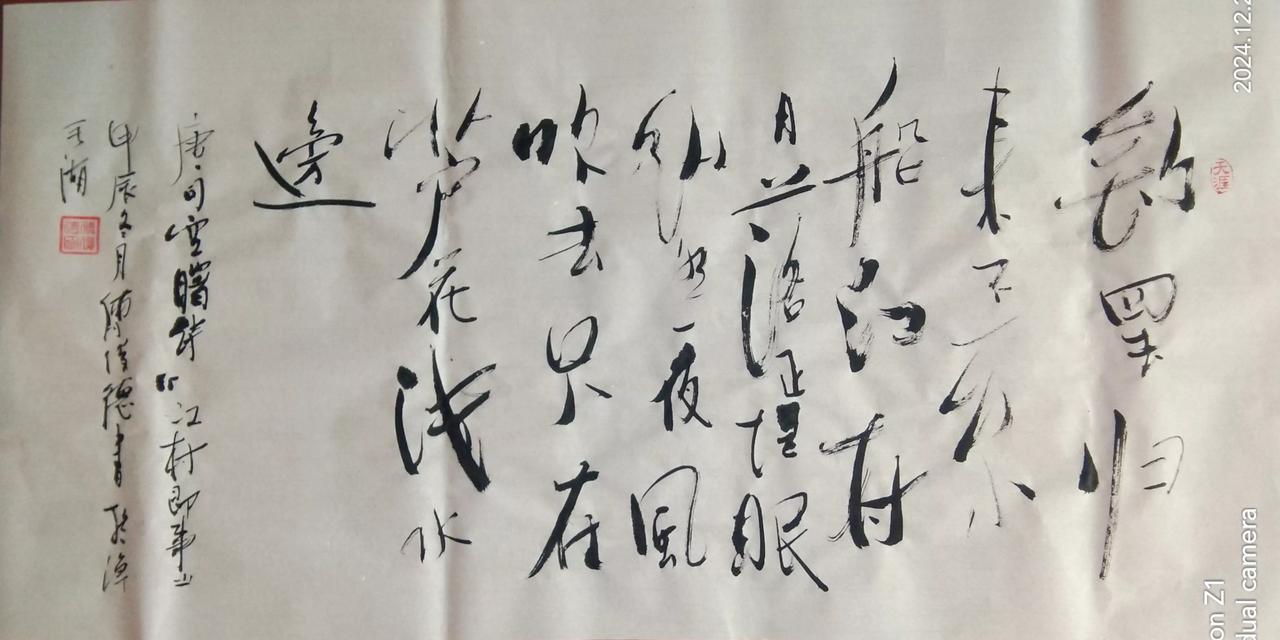 天涯
钓罢归
来不系
船江村
月落正堪眠
纵然一夜風
吹去只在
芦花浅水
邊
唐·司空曙诗“江村即事”
甲辰冬月 德書於
湖
2024.12.2
on Z1
dual camera